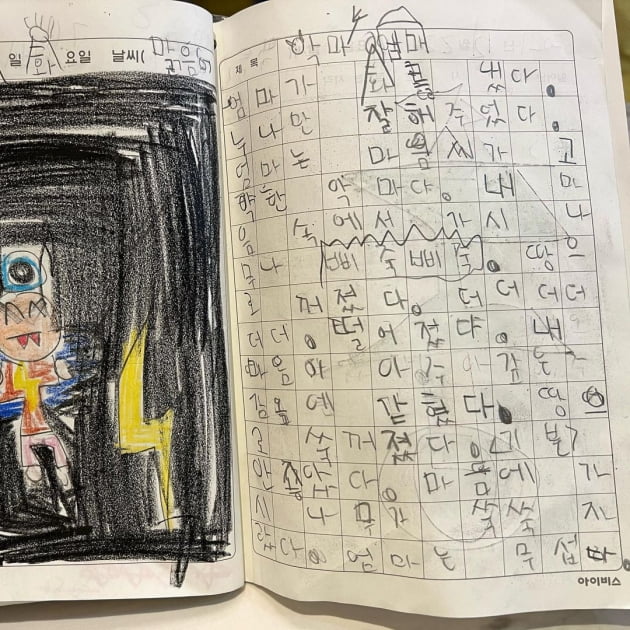 일 화 요일 날씨(
제 목 악마 엄마
엄마가 화를 냈다.
누나만 잘해주었다.
엄마는 마음씨가 고
약한 악마다. 내 마
음 속에서 가시 나
무 나 삐쭉삐쭉. 땅으
로 꺼졌다. 더 더 더더
더더. 떨어졌다. 내
마음이 아주
감옥에 갇혔다. 땅으
로 쑥 꺼졌다.
안 좋았다. 마음에 가
시나무가 쑥쑥 자
랐다. 엄마는 무섭다.
아이비스